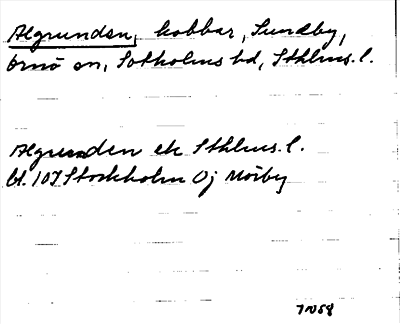 Algrunden, kobbar, Sundby,
Ornö sn, Sotholms hd, Sthlms. l.
Algrunden ek Sthlms. l.
bl. 107 Stockholm Oj Mörby
7 NV 58